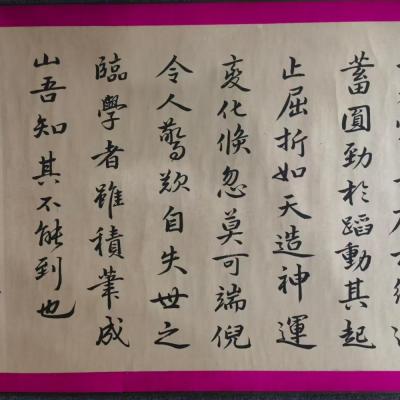 蓄圓勁於蹈動其起
止屈折如天造神運
变化倏忽莫可端倪
令人驚歎自失世之
臨學者雖積筆成
山吾知其不能到也